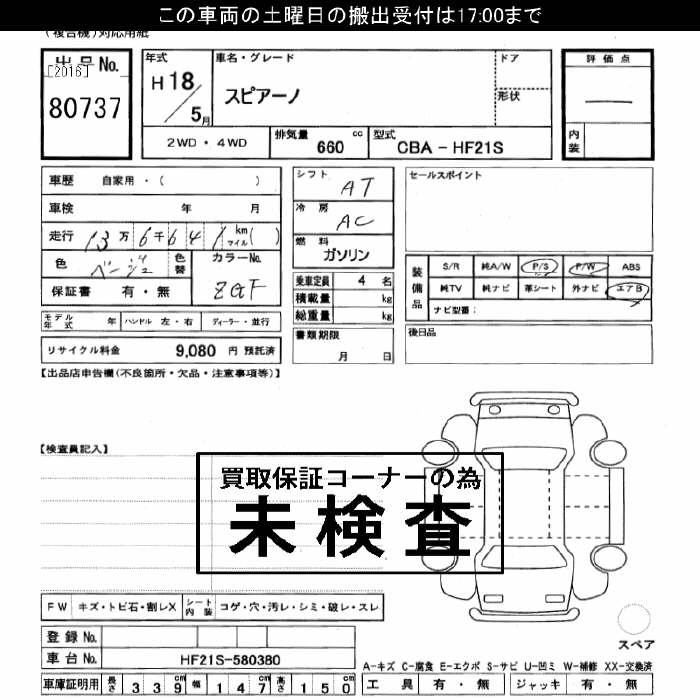 この車両の土曜日の搬出受付は17:00まで
(複合機)対応用紙
出品No.
[2016]
80737
年式
H18/5月
車名・グレード
スピアーノ
ドア
形状
評価点
内装
2WD・4WD
排気量 660 cc
型式 CBA-HF21S
車歴 自家用・( )
車検 年 月
走行 13万6千641 km マイル( )
色 ベージュ
色替
カラーNo.
ZGF
保証書 有・無
シフト AT
冷房 AC
燃料 ガソリン
乗車定員 4 名
積載量 kg
総重量 kg
セールスポイント
装備品
S/R 純A/W P/S P/W ABS
純TV 純ナビ 革シート 外ナビ エアB
ナビ型番:
モデル年式 年 ハンドル 左・右 ディーラー・並行
リサイクル料金 9,080 円 預託済
書類期限
月 日
後日品
【出品店申告欄(不良箇所・欠品・注意事項等)】
【検査員記入】
買取保証コーナーの為
未検査
FW キズ・トビ石・割レX シート内装 コゲ・穴・汚レ・シミ・破レ・スレ
登録No.
車台No. HF21S-580380
車庫証明用 長さ 339 幅 147 高さ 150
スペア
A-キズ C-腐食 E-エクボ S-サビ U-凹ミ W-補修 XX-交換済
工具 有・無 ジャッキ 有・無